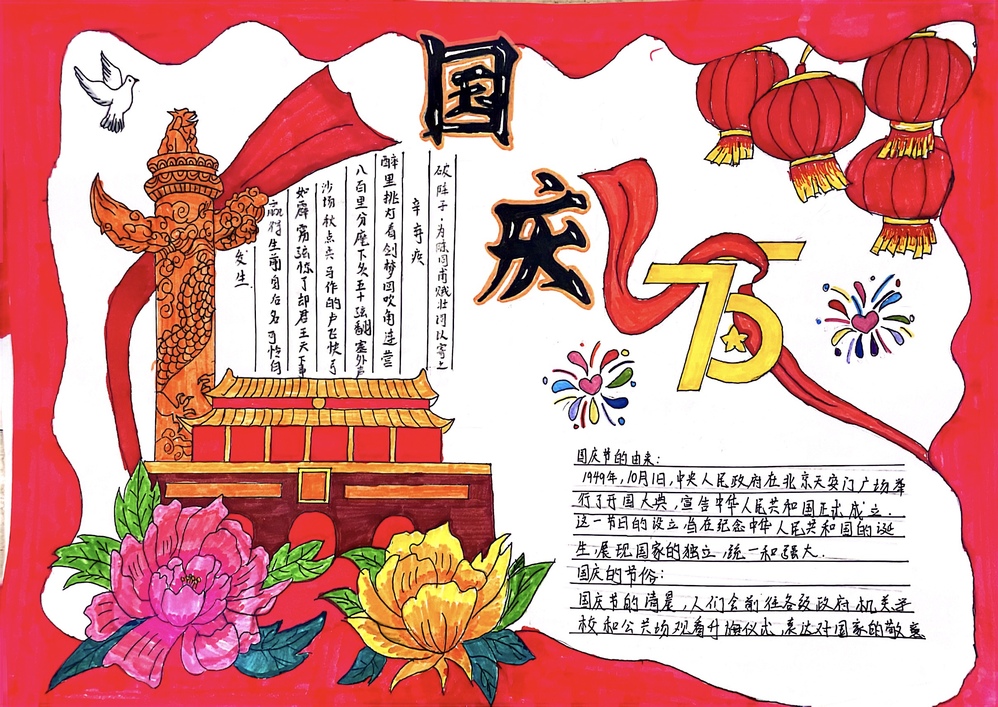 国
庆
75
破阵子·为陈同甫赋壮词以寄之
辛弃疾
醉里挑灯看剑梦回吹角连营
八百里分麾下炙五十弦翻塞外声
沙场秋点兵马作的卢飞快弓
如霹雳弦惊了却君王天下事
赢得生前身后名可怜白
发生
国庆节的由来:
1949年,10月1日,中央人民政府在北京天安门广场举
行了开国大典,宣告中华人民共和国正式成立.
这一节日的设立,旨在纪念中华人民共和国的诞
生,展现国家的独立,统一和强大.
国庆的节俗:
国庆节的清晨,人们会前往各级政府机关学
校和公共场观看升旗仪式,表达对国家的敬意